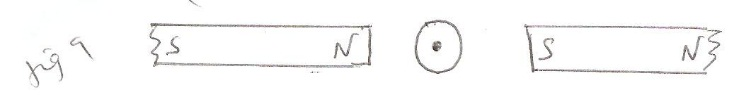 fig 9
S N S N